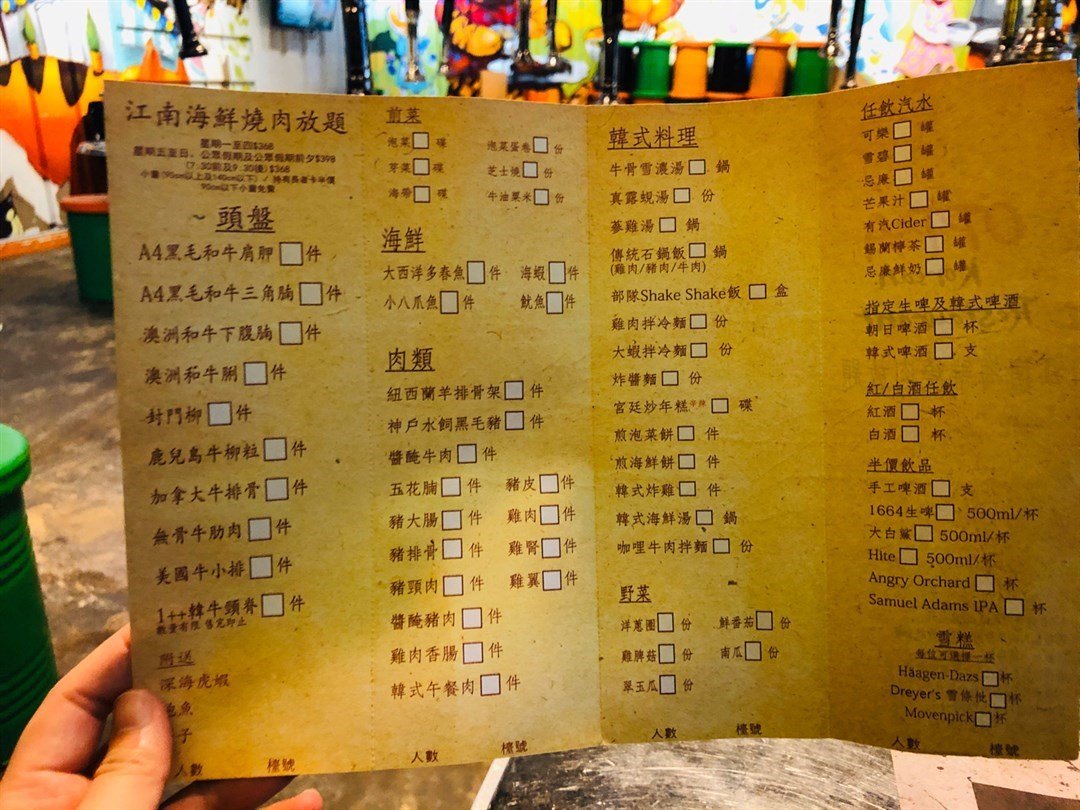 江南海鮮燒肉放題
星期一至四$368
星期五至日、公眾假期及公眾假期前夕$398
(7:30前及9:30後) $368
小童(90cm以上及140cm以下) / 持有長者卡半價
90cm以下小童免費
~ 頭盤
A4黑毛和牛肩胛 件
A4黑毛和牛三角腩 件
澳洲和牛下腹腩 件
澳洲和牛脷 件
封門柳 件
鹿兒島牛柳粒 件
加拿大牛排骨 件
無骨牛肋肉 件
美國牛小排 件
1++韓牛頸脊 件
數量有限 售完即止
附送
深海虎蝦
鮑魚
子
人數 檯號
前菜
泡菜 碟 泡菜蛋卷 份
芽菜 碟 芝士燒 份
海帶 碟 牛油粟米 份
海鮮
大西洋多春魚 件 海蝦 件
小八爪魚 件 魷魚 件
肉類
紐西蘭羊排骨架 件
神戶水飼黑毛豬 件
醬醃牛肉 件
五花腩 件 豬皮 件
豬大腸 件 雞肉 件
豬排骨 件 雞腎 件
豬頸肉 件 雞翼 件
醬醃豬肉 件
雞肉香腸 件
韓式午餐肉 件
人數 檯號
韓式料理
牛骨雪濃湯 鍋
真露蜆湯 份
蔘雞湯 鍋
傳統石鍋飯 鍋
(雞肉/豬肉/牛肉)
部隊Shake Shake飯 盒
雞肉拌冷麵 份
大蝦拌冷麵 份
炸醬麵 份
宮廷炒年糕 碟
煎泡菜餅 件
煎海鮮餅 件
韓式炸雞 件
韓式海鮮湯 鍋
咖哩牛肉拌麵 份
野菜
洋蔥圈 份 鮮番茄 份
雞脾菇 份 南瓜 份
翠玉瓜 份
人數 檯號
任飲汽水
可樂 罐
雪碧 罐
忌廉 罐
芒果汁 罐
有汽Cider 罐
錫蘭檸茶 罐
忌廉鮮奶 罐
指定生啤及韓式啤酒
朝日啤酒 杯
韓式啤酒 支
紅/白酒任飲
紅酒 杯
白酒 杯
半價飲品
手工啤酒 支
1664生啤 500ml/杯
大白鯊 500ml/杯
Hite 500ml/杯
Angry Orchard 杯
Samuel Adams IPA 杯
雪糕
每位可選擇一杯
Häagen-Dazs 杯
Dreyer's 雪條批 杯
Movenpick 杯
人數 檯號